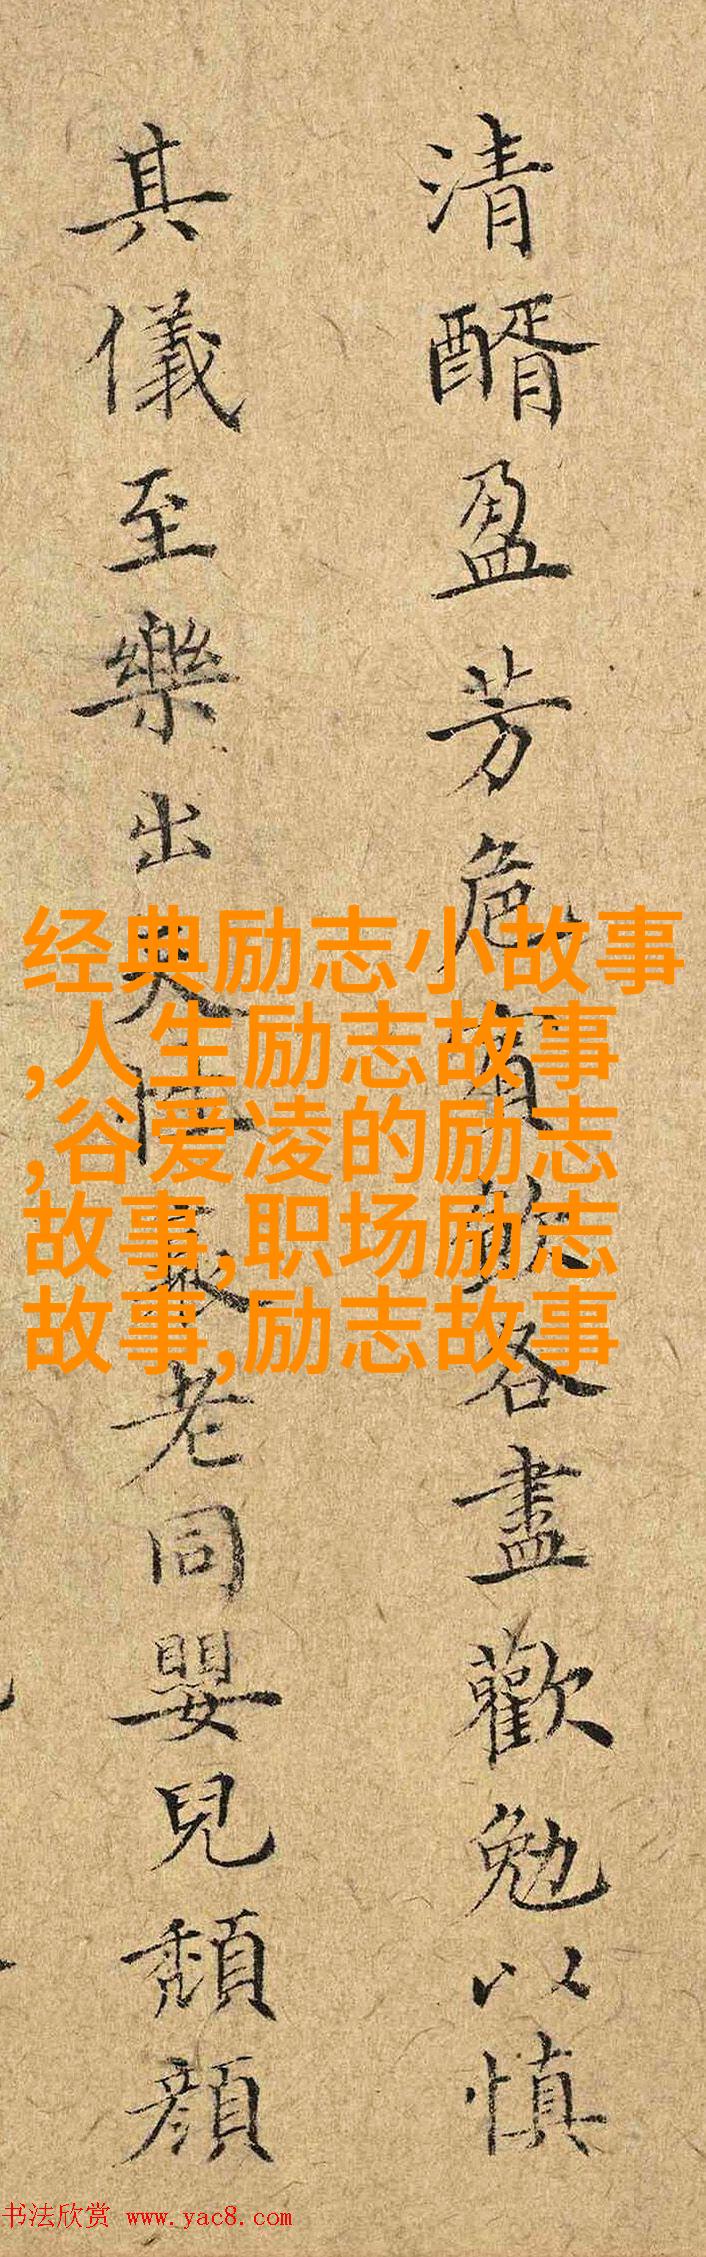 清醑盈芳
賓飲各盡歡勉以慎
其儀至樂出
老同嬰兒頹顏
经典励志小故事
,人生励志故事
,谷爱凌的励志
故事,职场励志
故事,励志故事
书法欣赏 www.yac8.com